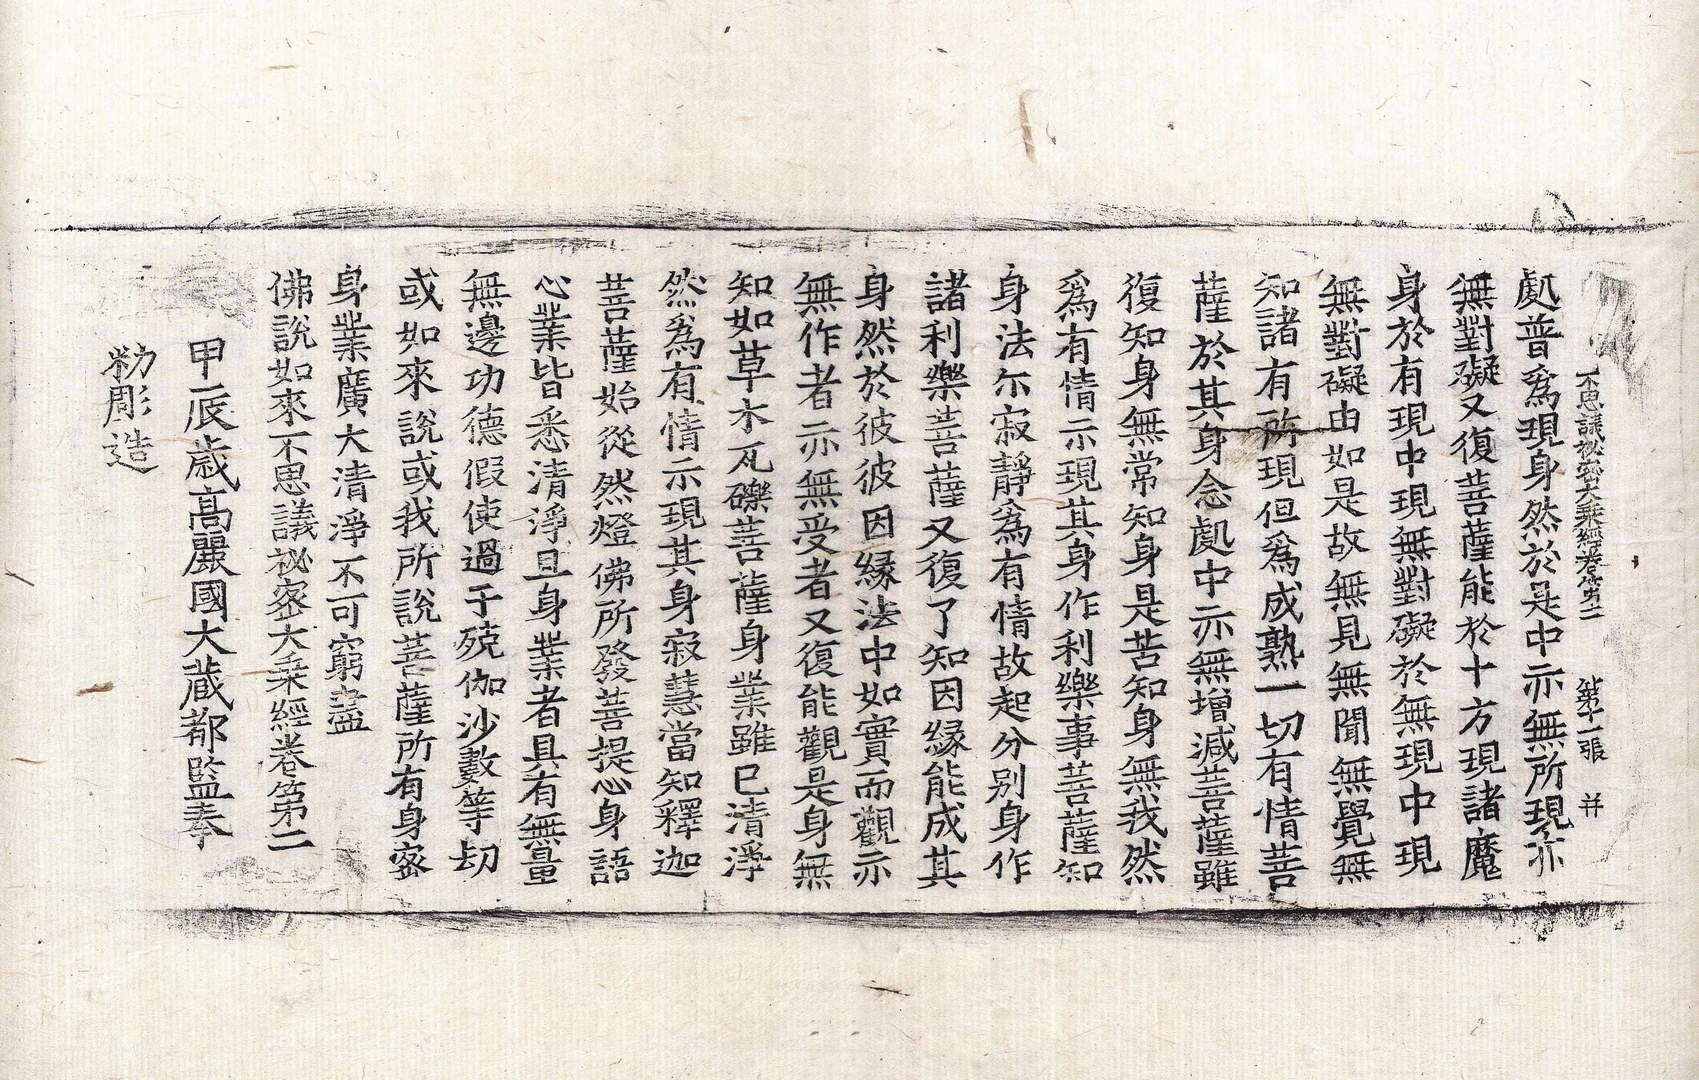 不思議祕密大乗經卷第二 第十一張 幷
處普爲現身然於是中亦無所現亦
無對礙又復菩薩能於十方現諸魔
身於有現中現無對礙於無現中現
無對礙由如是故無見無聞無覺無
知諸有所現但爲成熟一切有情菩
薩於其身念處中亦無增減菩薩雖
復知身無常知身是苦知身無我然
爲有情示現其身作利樂事菩薩知
身法尓寂靜爲有情故起分別身作
諸利樂菩薩又復了知因縁能成其
身然於彼彼因縁法中如實而觀亦
無作者亦無受者又復能觀是身無
知如草木瓦礫菩薩身業雖已清淨
然爲有情示現其身寂慧當知釋迦
菩薩始從然燈佛所發菩提心身語
心業皆悉清淨且身業者具有無量
無邊功德假使過于殑伽沙數等劫
或如來說或我所說菩薩所有身密
身業廣大清淨不可窮盡
佛說如來不思議祕密大乗經卷第二
甲辰歳高麗國大藏都監奉
勑彫造